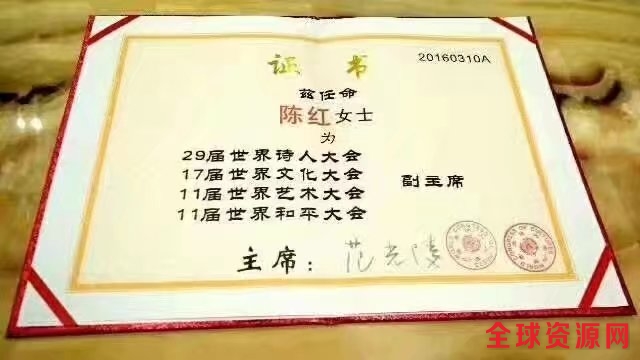 证书
20160310A
兹任命
陈红女士
为
29届世界诗人大会
17届世界文化大会
11届世界艺术大会
11届世界和平大会
副主席
主席：范光陵
全球资源网